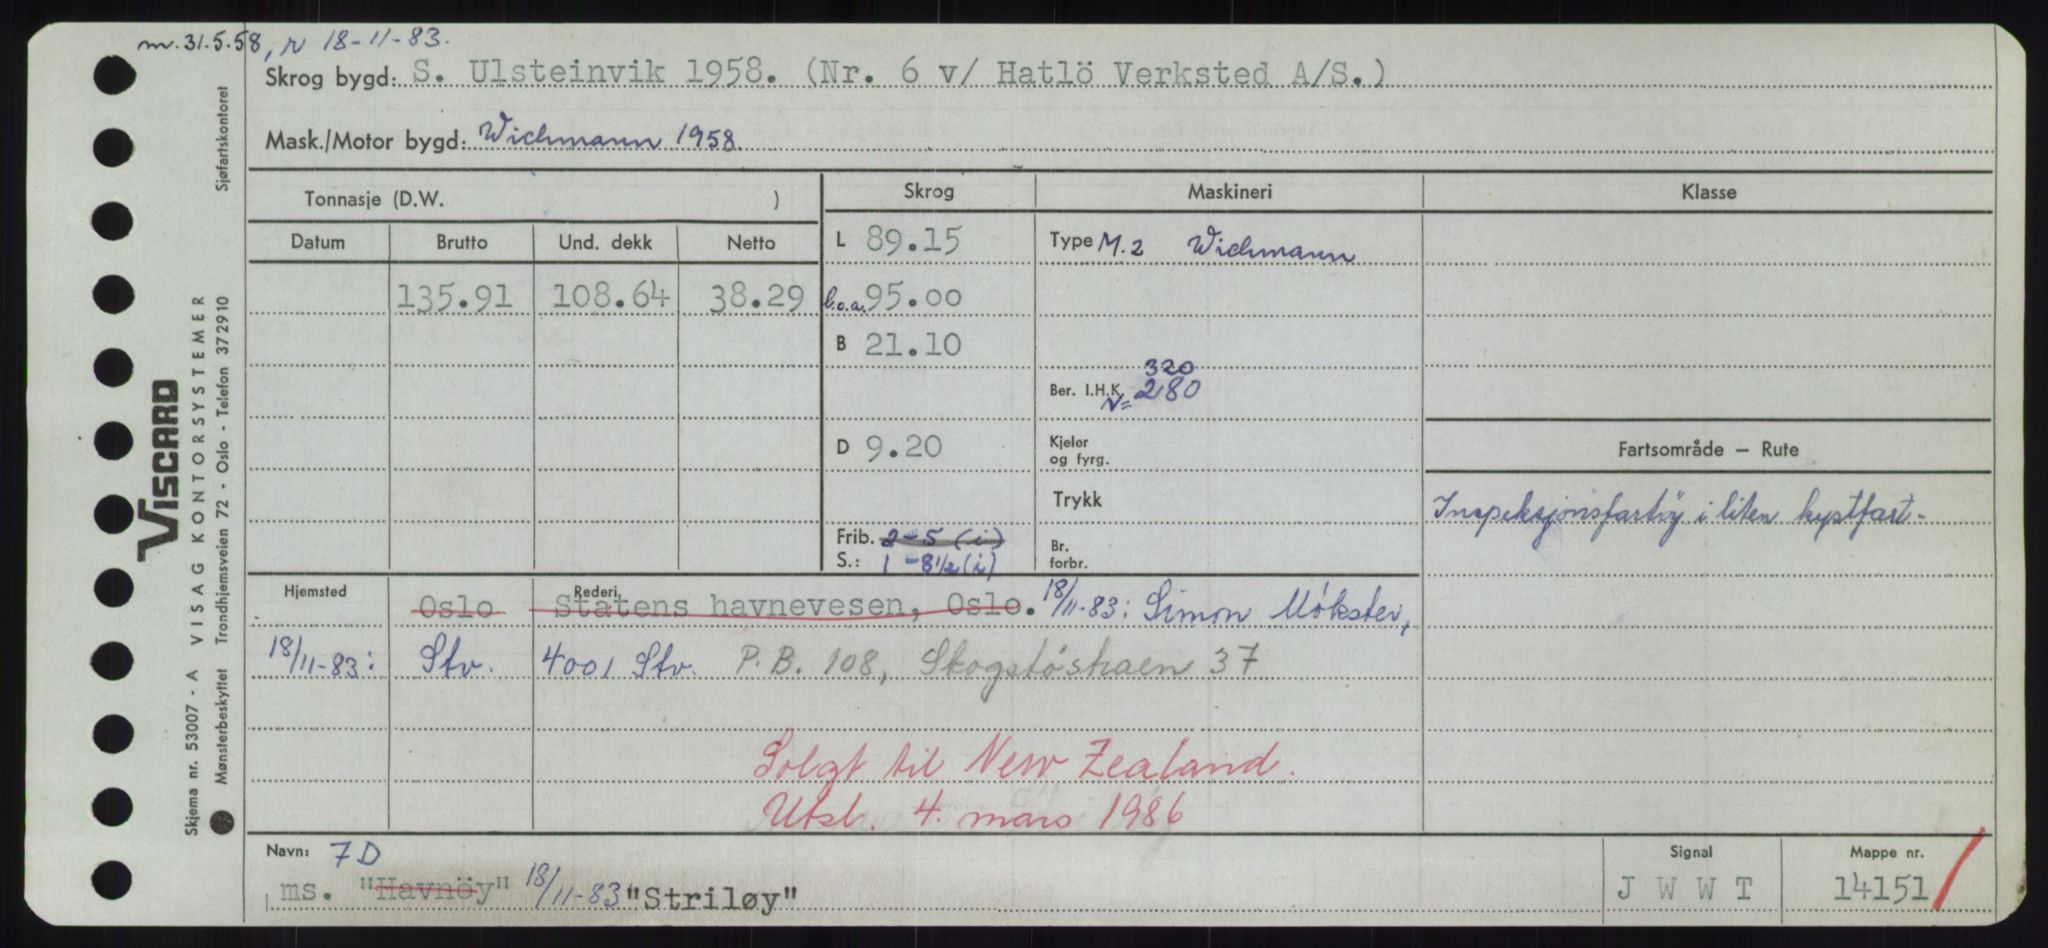 m. 31.5.58, r 18-11-83.
Skrog bygd: S. Ulsteinvik 1958. (Nr. 6 v/ Hatlö Verksted A/S.)
Mask./Motor bygd: Wichmann 1958
Tonnasje (D.W. )
Skrog
Maskineri
Klasse
Datum Brutto Und. dekk Netto
L 89.15
Type M.2 Wichmann
135.91 108.64 38.29
l.o.a. 95.00
B 21.10
320
Ber. I.H.K. N= 280
D 9.20
Kjeler
og fyrg.
Fartsområde – Rute
Trykk
Inspeksjonsfartöy i liten kystfart-
Frib. 2-5 (i)
S.: 1 - 8 1/2 (i)
Br.
forbr.
Hjemsted
Rederi
Oslo Statens havnevesen, Oslo. 18/11-83: Simon Møkster,
18/11-83: Stv. 4001 Stv. P.B. 108, Skogstøstraen 37
Solgt til New Zealand.
Utsl. 4. mars 1986
Navn: 7D
ms. "Havnöy" 18/11-83 "Striløy"
Signal
J W W T
Mappe nr.
14151
Sjøfartskontoret
VISCARD
VISAG KONTORSYSTEMER
Skjema nr. 53007 - A
Mønsterbeskyttet Trondhjemsveien 72 - Oslo - Telefon 372910